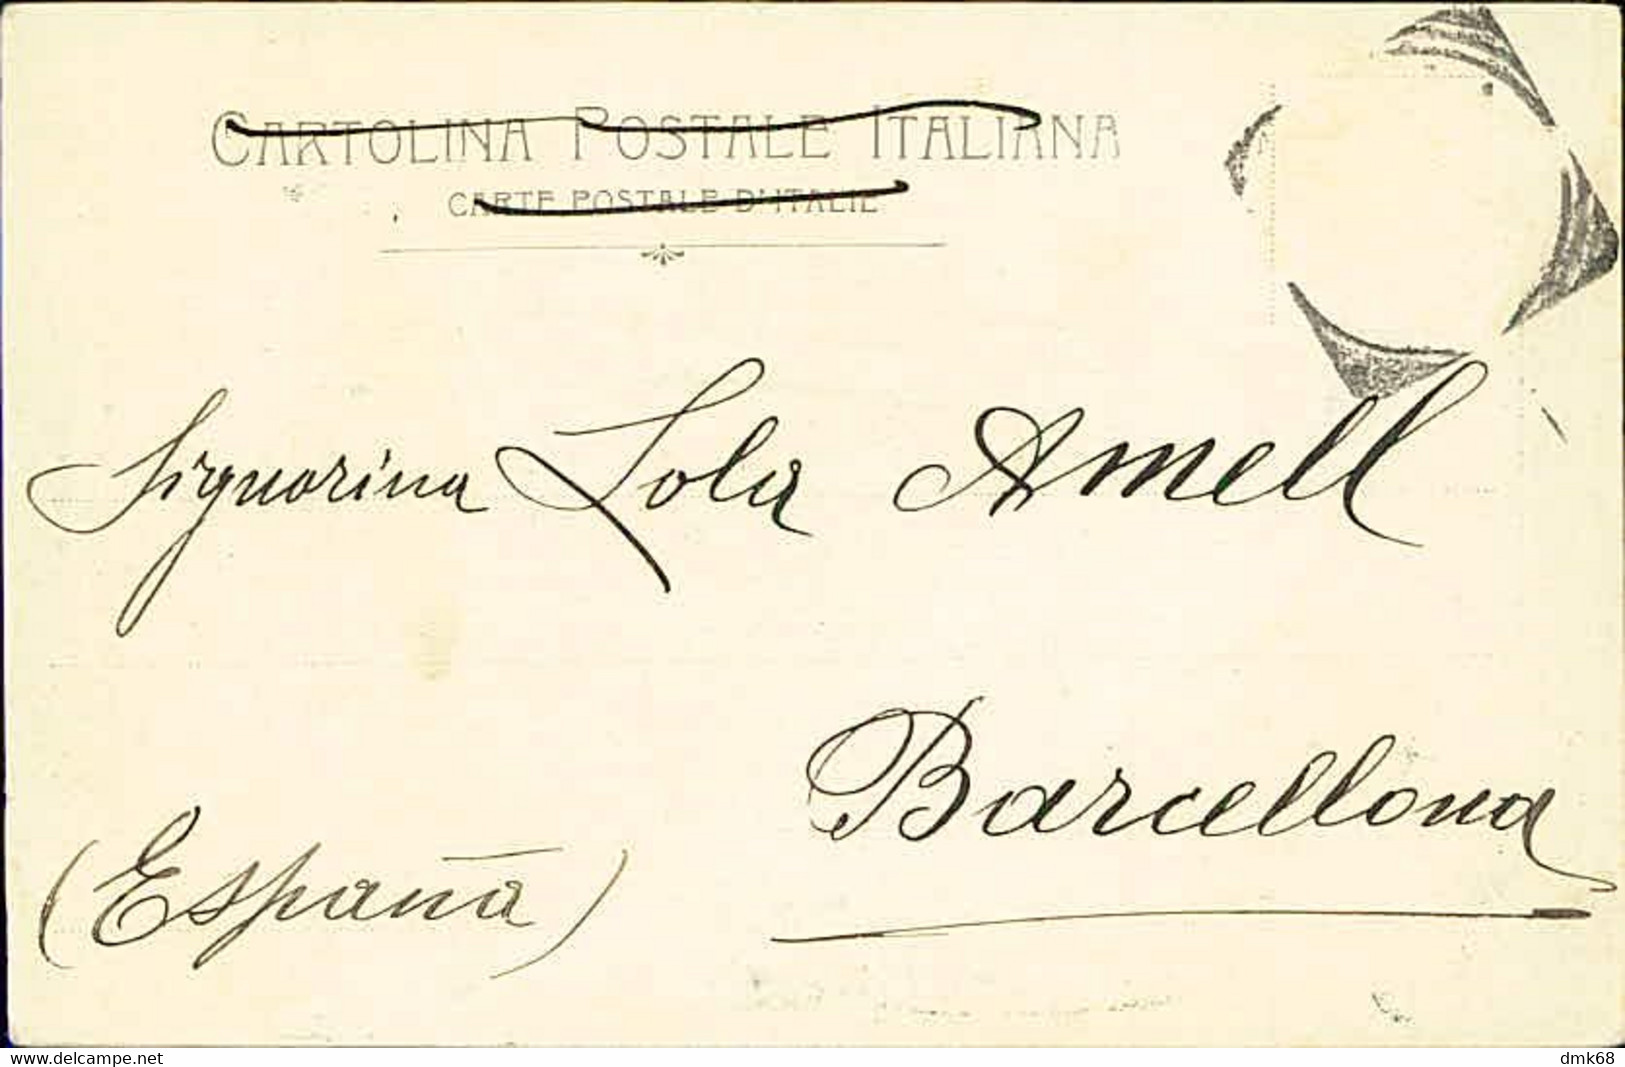 CARTOLINA POSTALE ITALIANA
CARTE POSTALE D'ITALIE
Signorina Lola Amell
Barcellona
(España)
www.delcampe.net
dmk68